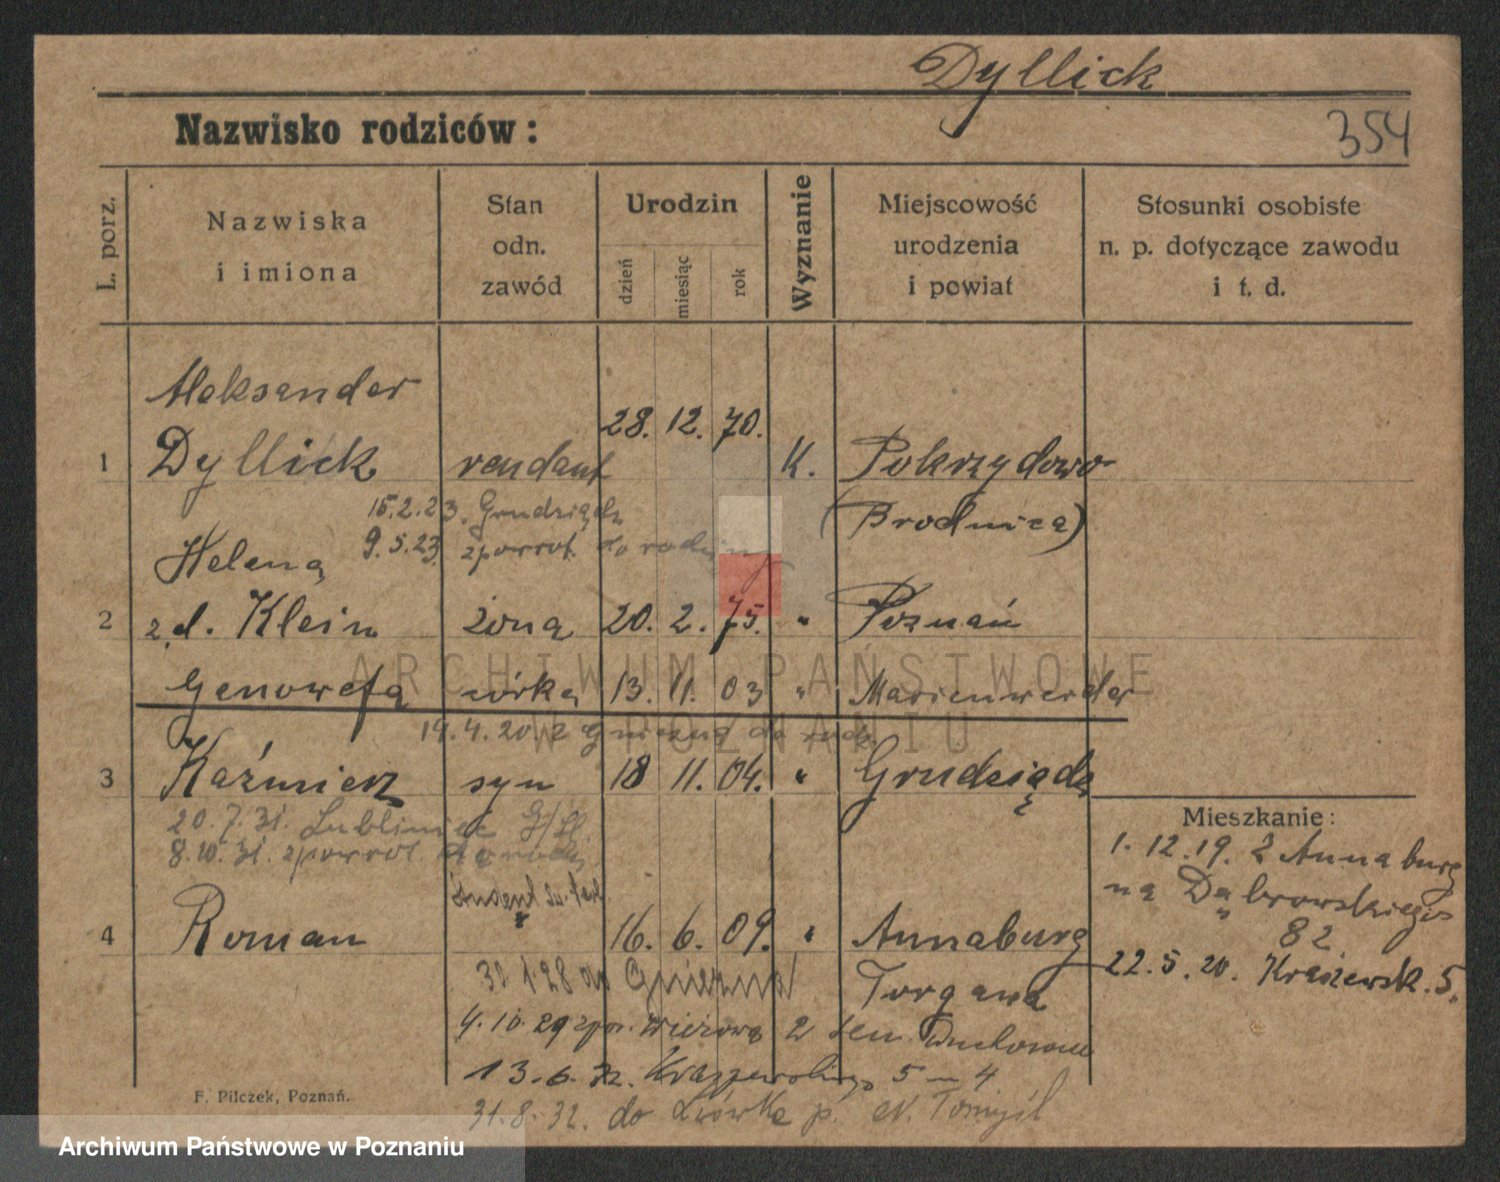 Dyllick
Nazwisko rodziców:
354
L. porz.
Nazwiska
i imiona
Stan
odn.
zawód
Urodzin
dzień
miesiąc
rok
Wyznanie
Miejscowość
urodzenia
i powiat
Stosunki osobiste
n. p. dotyczące zawodu
i t. d.
Aleksander
28. 12. 70.
1 Dyllick rendant K. Pokrzydowo
15.2.23. Grudziądz (Brodnica)
9.5.23. zpowrot. do rodziny
Helena
2 z d. Klein żona 20. 2. 75. " Poznań
ARCHIWUM PAŃSTWOWE
W POZNANIU
Genowefa córka 13. 11. 03 " Marienwerder
19.4.20 z Gniezna do rodz.
3 Kaźmierz syn 18 11. 04. " Grudziądz
20.7.31. Lubliniec G/Śl.
8.10.31. zpowrot. do rodz.
Mieszkanie:
1. 12. 19. z Annaburg
na Dąbrowskiego
82
22. 5. 20. Kraszewsk. 5.
student
4 Roman 16. 6. 09. " Annaburg
Torgawa
1.28 do Gniezna
4.10.29 zpow. Wieżowa 2 sem. Duchowne
13.6.32. Kraszewskiego 5 – 4
31.8.32. do Lwówka p. N. Tomyśl
F. Pilczek, Poznań.
Archiwum Państwowe w Poznaniu